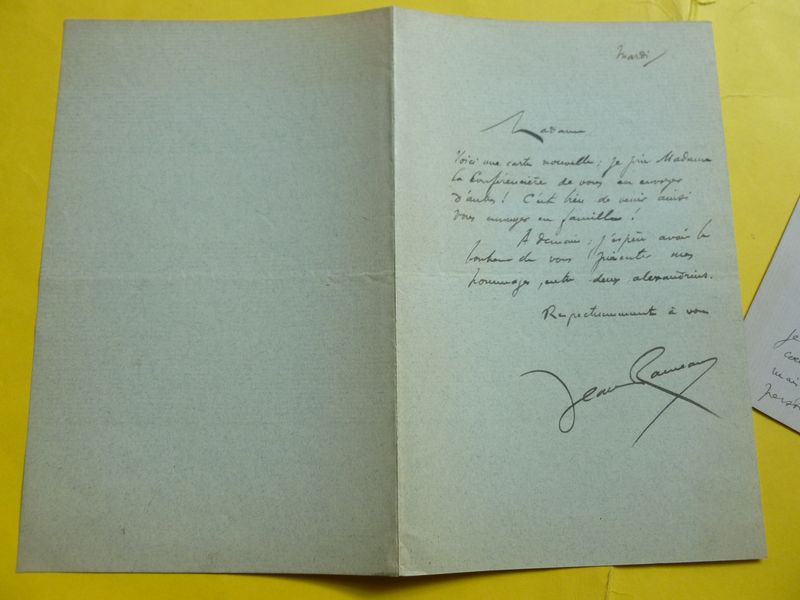 Mardi
Madame
Voici une carte nouvelle ; je prie Madame
la Conférencière de vous en envoyer
d'autres ! C'est bien de venir ainsi
vous ennuyer en famille !
A demain ; j'espère avoir le
bonheur de vous présenter mes
hommages, entre deux alexandrins.
Respectueusement à vous
Jean Rameau
je
mai